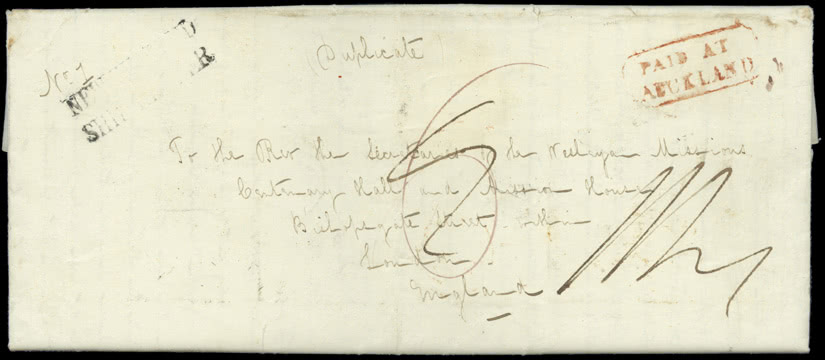 (Duplicate)
No 1
PAID AT
AUCKLAND
To the Rev the Secretaries of the Wesleyan Missions
Centenary Hall and Mission House
Bishopsgate Street within
London.
England